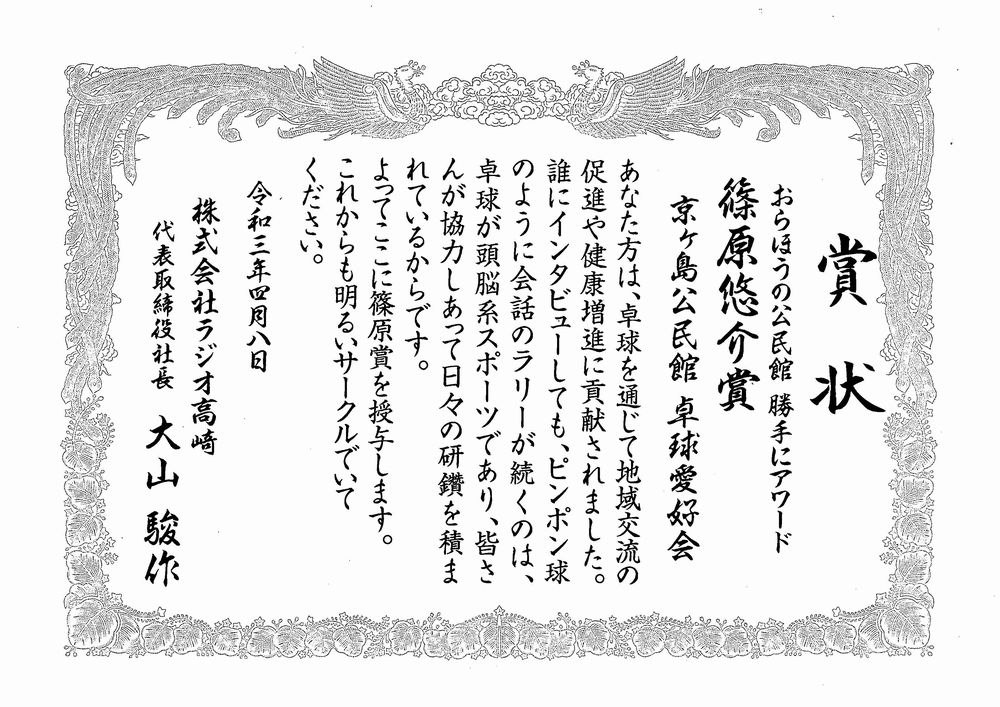 賞状
おらほうの公民館 勝手にアワード
篠原悠介賞
京ヶ島公民館 卓球愛好会
あなた方は、卓球を通じて地域交流の
促進や健康増進に貢献されました。
誰にインタビューしても、ピンポン球
のように会話のラリーが続くのは、
卓球が頭脳系スポーツであり、皆さ
んが協力しあって日々の研鑽を積ま
れているからです。
よってここに篠原賞を授与します。
これからも明るいサークルでいて
ください。
令和三年四月八日
株式会社ラジオ高崎
代表取締役社長 大山 駿作